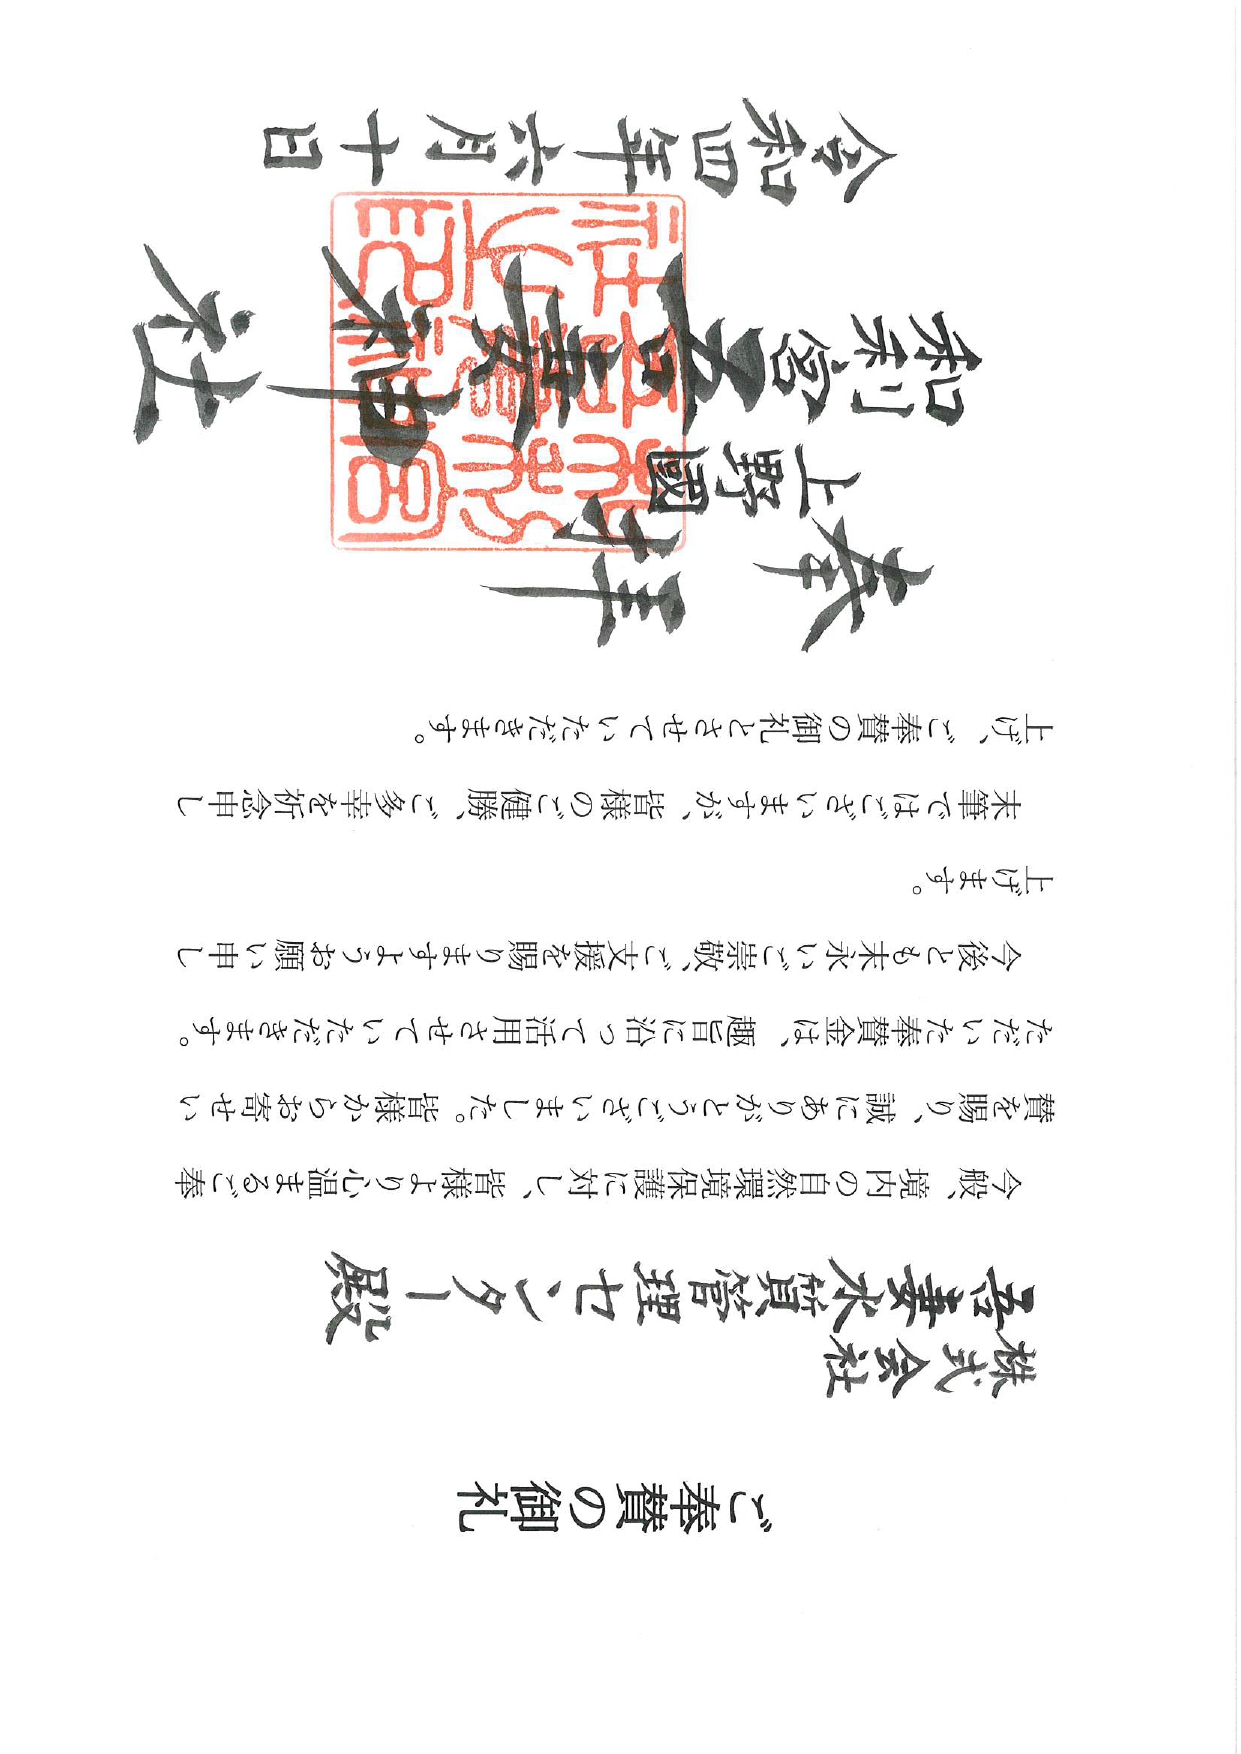 ご奉賛の御礼
株式会社
吾妻水質管理センター殿
今般、境内の自然環境保護に対し、皆様より心温まるご奉
賛を賜り、誠にありがとうございました。皆様からお寄せい
ただいた奉賛金は、趣旨に沿って活用させていただきます。
今後とも末永いご崇敬、ご支援を賜りますようお願い申し
上げます。
末筆ではございますが、皆様のご健勝、ご多幸を祈念申し
上げ、ご奉賛の御礼とさせていただきます。
奉拝
上野國
和利宮
吾妻神社
令和四年六月十日